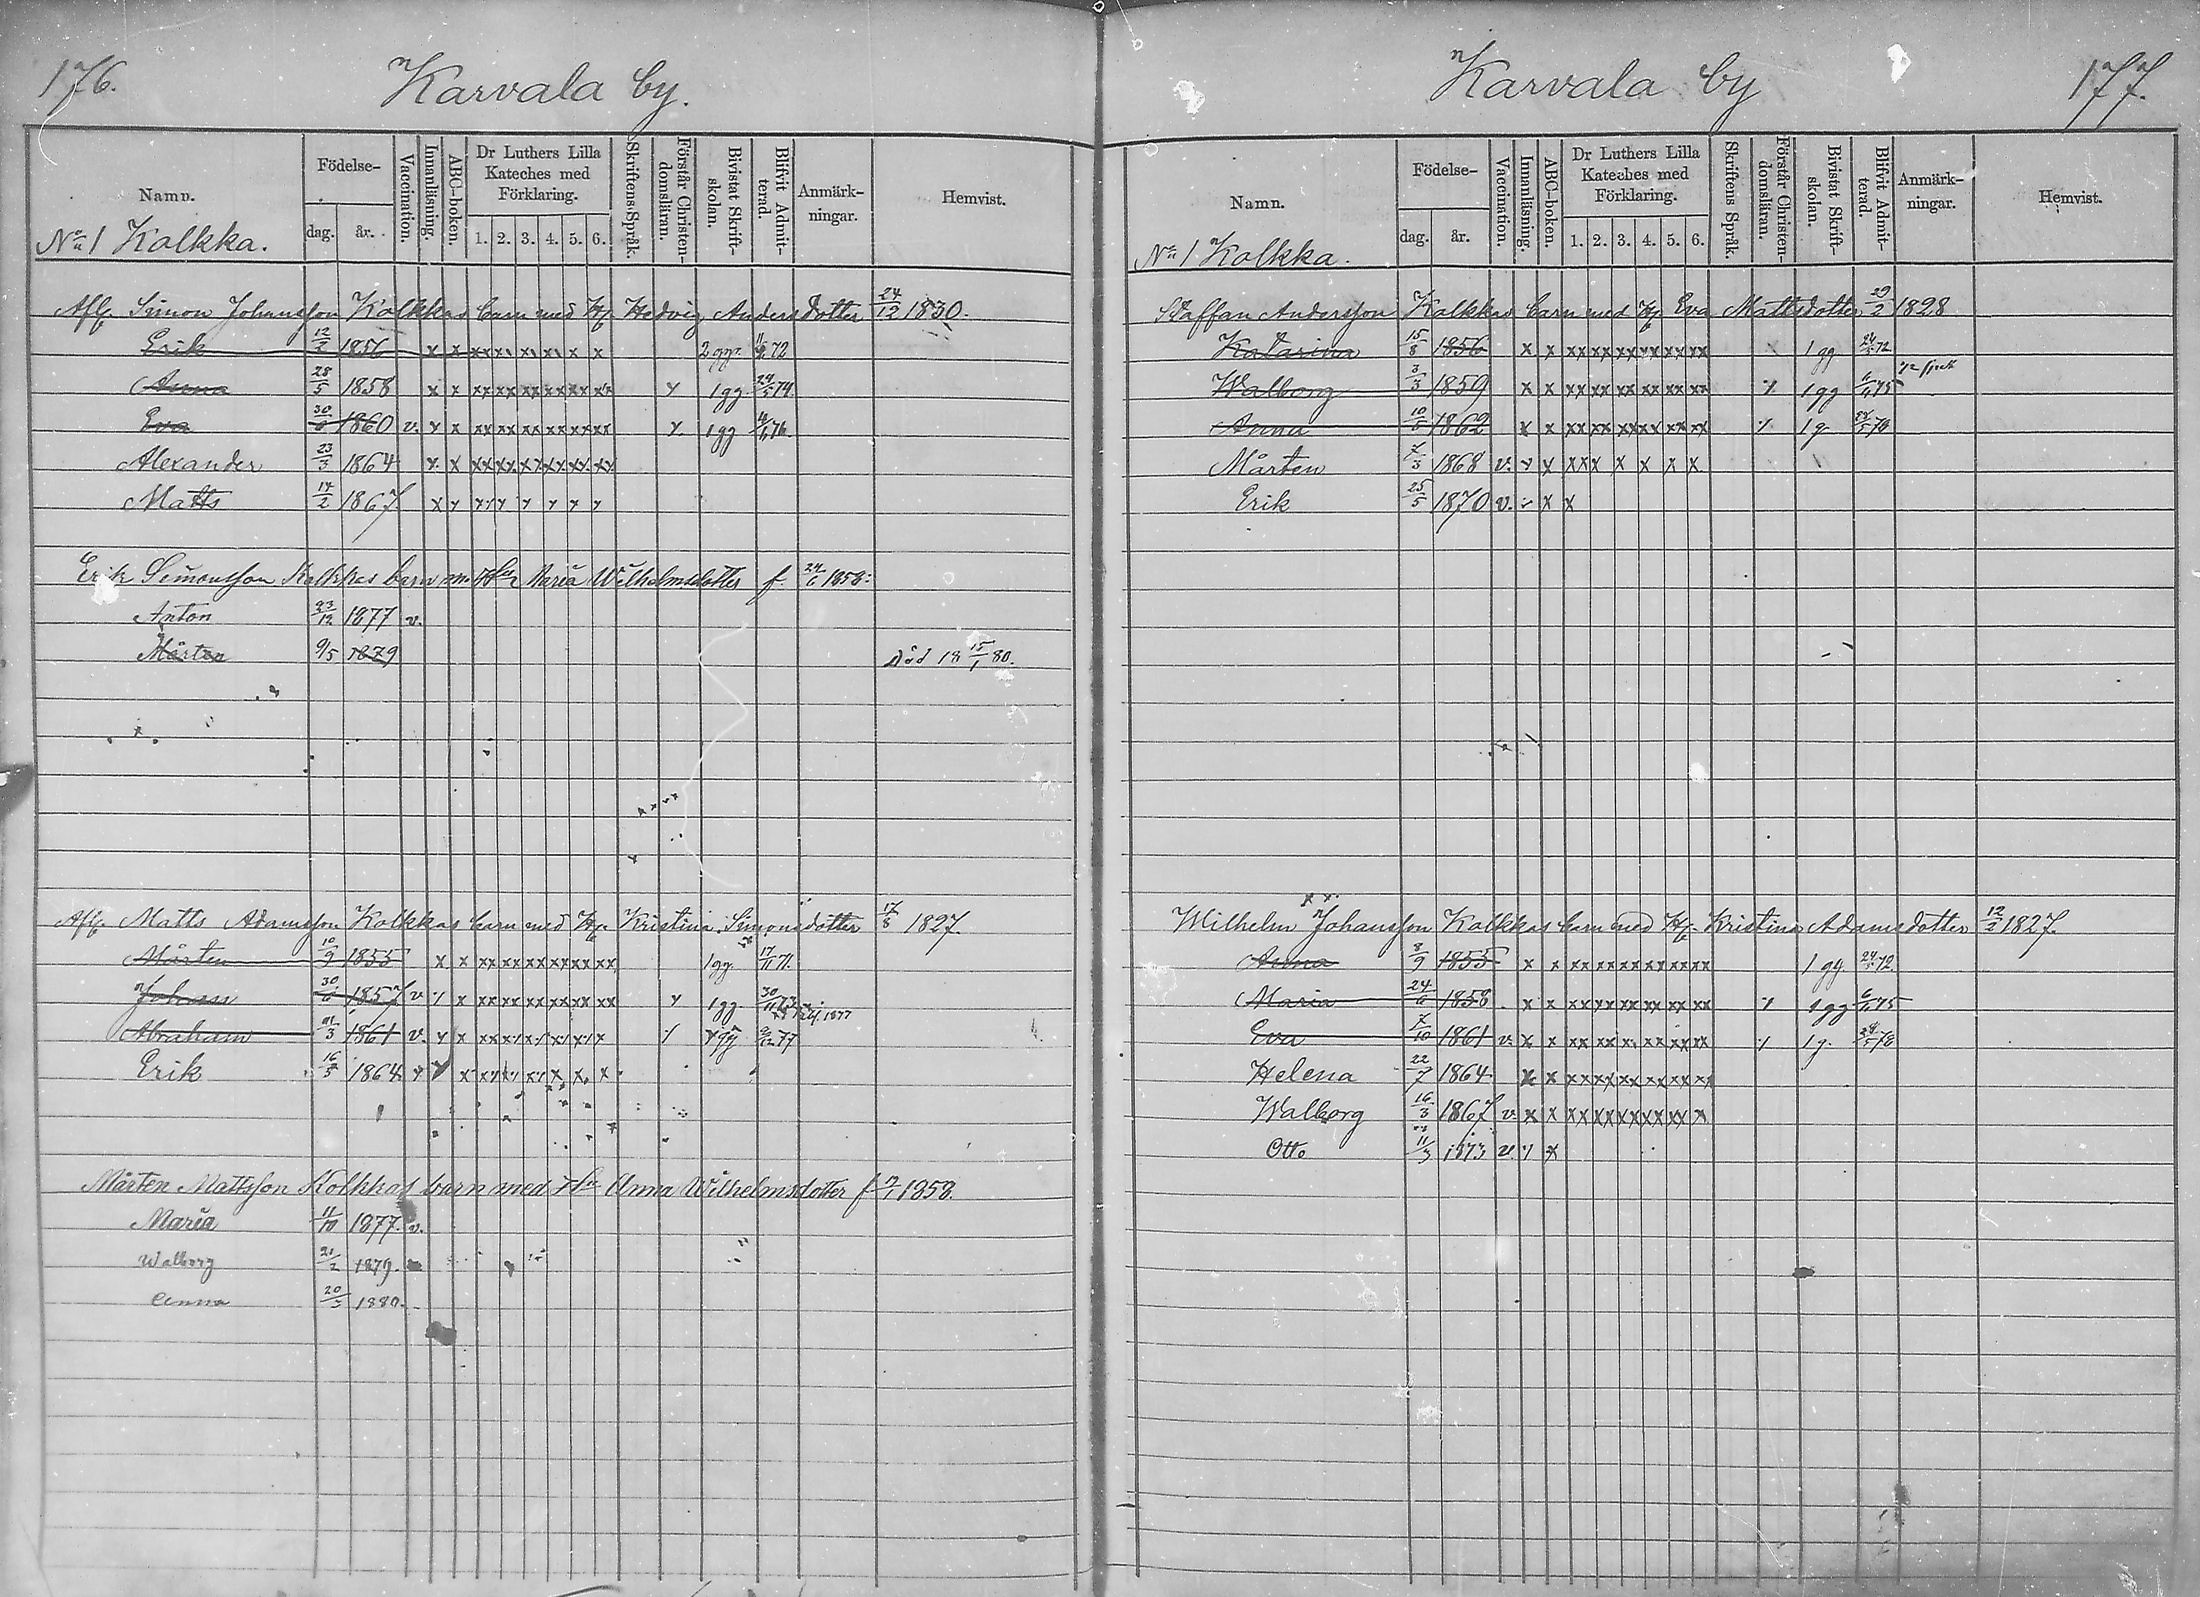 176.
Karvala by.
Namn.
Födelse-
dag. år.
Vaccination.
Innanläsning.
ABC-boken.
Dr Luthers Lilla Kateches med Förklaring.
1. 2. 3. 4. 5. 6.
Skriftens Språk.
Förstår Christendomsläran.
Bivistat Skriftskolan.
Blifvit Admitterad.
Anmärkningar.
Hemvist.
No 1 Kolkka.
Afl. Simon Johansson Kolkkas barn med H. Hedvig Andersdotter 24/12 1830.
Erik 12/2 1856 x x xx x x x x x 2 gg. 72
Anna 28/5 1858 x x xx xx xx xx xx xx x 1 gg. 24/5 74.
Eva 1860 v. x x xx xx xx xx xx xx x. 1 gg 76.
Alexander 23/3 1864 x. x xx xx xx xx xx xx
Matts 14/2 1867. x x xx x x x x x
Erik Simonsson Kolkkas barn m. Hu Maria Wilhelmsdotter f. 24/6 1858.
Anton 23/12 1877 v.
Mårten 9/5 1879 Död 18 15/1 80.
Afl. Matts Adamsson Kolkkas barn med H. Kristina Simonsdotter 17/8 1827.
Mårten 10/9 1855 x x xx xx xx xx xx xx 1 gg. 17/11 71.
Johan 30/6 1857 v x x xx xx xx xx xx xx x 1 gg. 30/11 1877
Abraham 21/3 1861 v. x x xx xx xx xx xx x x gg 77
Erik 16/5 1864 x x x xx xx xx x x. x
Mårten Mattsson Kolkkas barn med Hu Anna Wilhelmsdotter f 1858.
Maria 11/10 1877. v.
Walborg 21/2 1879.
Anna 20/3 1880.
Karvala by
177.
Namn.
Födelse-
dag. år.
Vaccination.
Innanläsning.
ABC-boken.
Dr Luthers Lilla Kateches med Förklaring.
1. 2. 3. 4. 5. 6.
Skriftens Språk.
Förstår Christendomsläran.
Bivistat Skriftskolan.
Blifvit Admitterad.
Anmärkningar.
Hemvist.
No 1 Kolkka.
Staffan Andersson Kolkkas barn med H. Eva Mattsdotter 29/2 1828
Katarina 15/8 1856 x x xx xx xx xx xx xx 1 gg 24/5 72
Walborg 3/3 1859 x x xx xx xx xx xx xx x 1 gg 6/6 75
Anna 1862 x x xx xx xx xx xx xx x 1 g. 24/5 78
Mårten 7/3 1868 v. x x xx x x x x x
Erik 25/5 1870 v. x x x
Wilhelm Johansson Kolkkas barn med H. Kristina Adamsdotter 12/2 1827.
Anna 8/9 1855 x x xx xx xx xx xx xx 1 gg. 24/5 72
Maria 24/6 1858 x x xx xx xx xx xx xx x 1 gg 6/6 75
Eva 7/10 1861 v. x x xx xx x xx xx xx x 1 g. 24/5 78
Helena 22/7 1864 x x xx xx xx xx xx xx
Walborg 16/3 1867 v. x x xx xx xx xx xx x
Otto 11/3 1873 v. x x